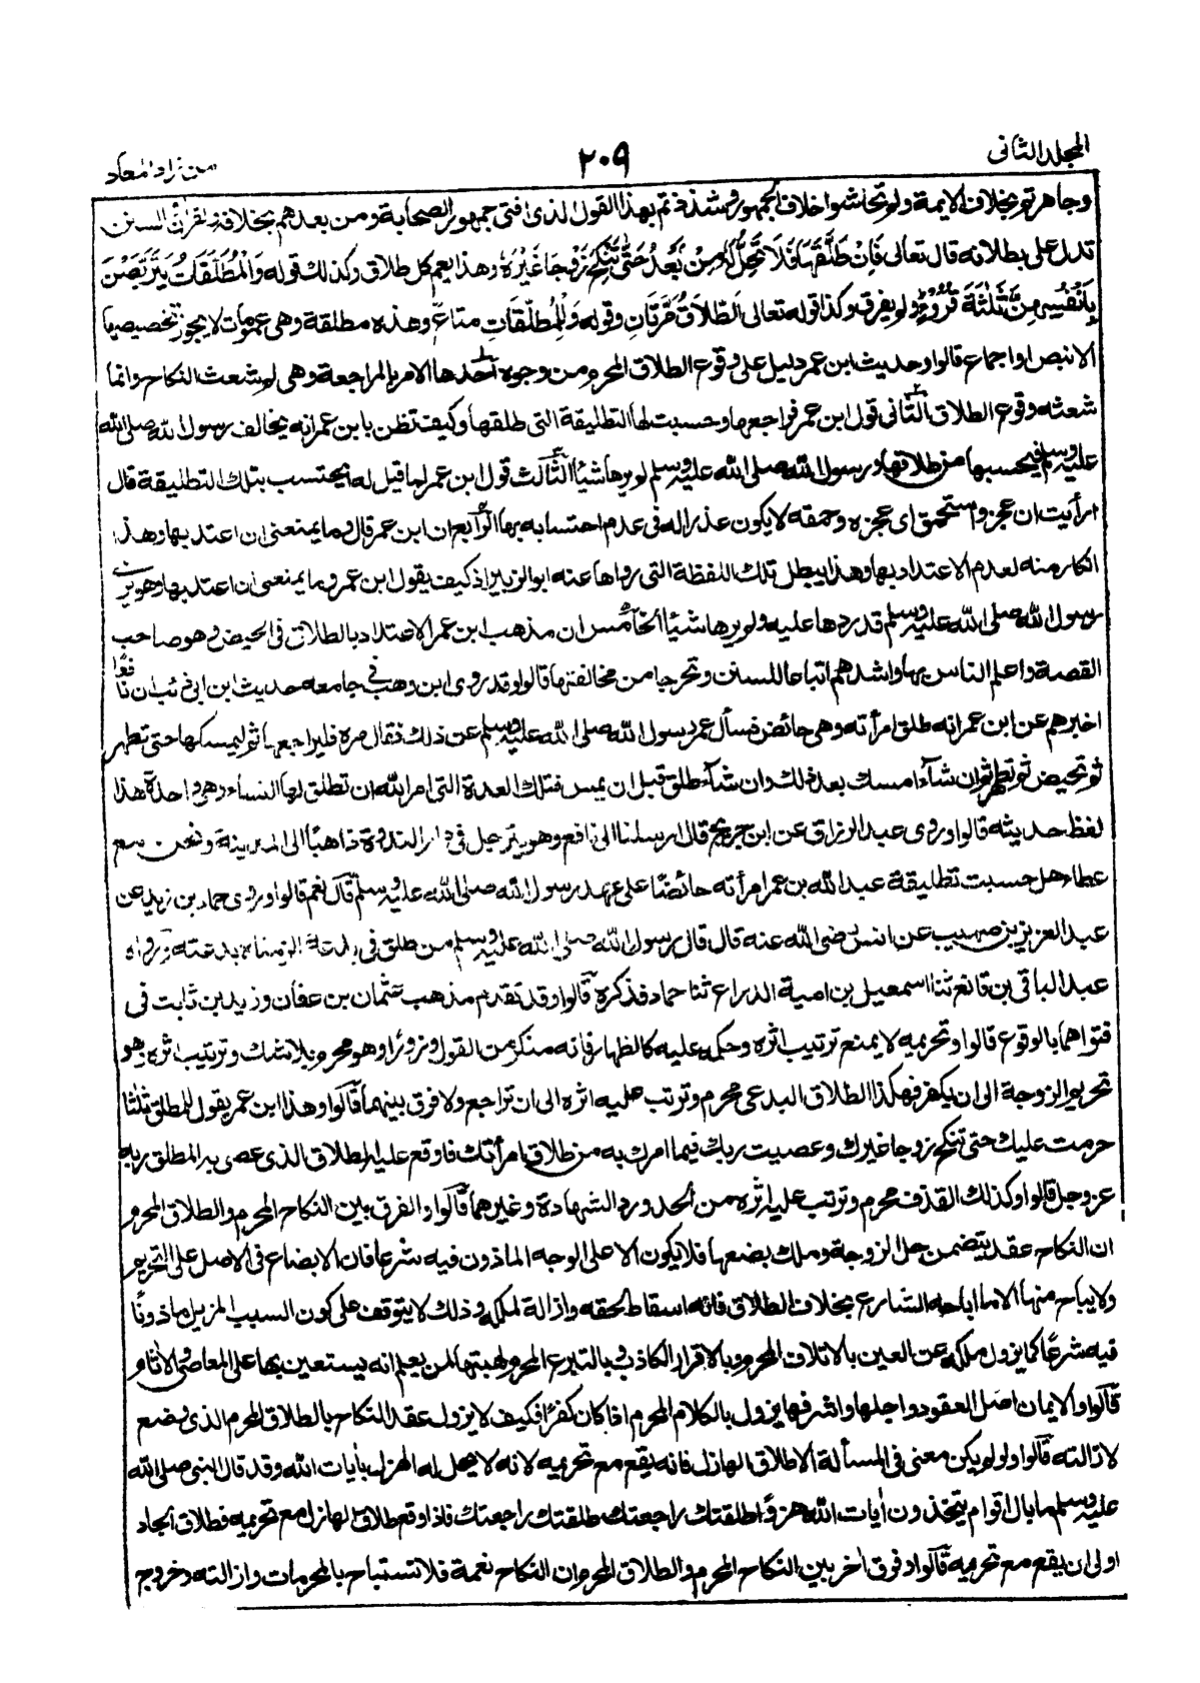 المجلد الثانی
٢٠٩
من زاد المعاد
وجاهرتم بخلاف الایمة ولم تحاشوا خلاف الجمهور وشذذتم بهذا القول لذی افتی جمهور الصحابة ومن بعدهم بخلافه والقرآن والسنن
تدل علی بطلانه قال تعالی فَاِنْ طَلَّقَهَا فَلَا تَحِلُّ لَهُ مِنْ بَعْدُ حَتّٰی تَنْكِحَ زَوْجًا غَیْرَهٗ وهذا یعم کل طلاق وکذلك قوله وَالْمُطَلَّقَاتُ یَتَرَبَّصْنَ
بِاَنْفُسِهِنَّ ثَلٰثَةَ قُرُوْءٍ ولم یفرق وکذا قوله تعالی اَلطَّلَاقُ مَرَّتَانِ وقوله وَلِلْمُطَلَّقَاتِ مَتَاعٌ وهذه مطلقة وهی عمومات لا یجوز تخصیصها
الا بنص او اجماع قالوا وحدیث ابن عمر دلیل علی وقوع الطلاق المحرم من وجوه احدها الامر بالمراجعة وهی لم شعث النکاح وانما
شعثه وقوع الطلاق الثانی قول ابن عمر فراجعها وحسبت لها التطلیقة التی طلقها وکیف تظن بابن عمر انه یخالف رسول الله صلی الله
علیه وسلم فیحسبها من طلاقها ورسول الله صلی الله علیه وسلم لم یرها شیأ الثالث قول ابن عمر لما قیل له ایحتسب بتلك التطلیقة قال
ارأیت ان عجز واستحمق ای عجزه وحمقه لا یکون عذرا له فی عدم احتسابه بها الرابع ان ابن عمر قال وما یمنعنی ان اعتد بها وهذا
انکار منه لعدم الاعتداد بها وهذا یبطل تلك اللفظة التی رواها عنه ابو الزبیر اذ کیف یقول ابن عمر وما یمنعنی ان اعتد بها وهو یری
رسول الله صلی الله علیه وسلم قد ردها علیه ولم یرها شیأ الخامس ان مذهب ابن عمر الاعتداد بالطلاق فی الحیض وهو صاحب
القصة واعلم الناس بها واشدهم اتباعا للسنن وتحرجا من مخالفتها قالوا وقد روی ابن وهب فی جامعه حدیث ابن ابی ذئب ان نافعًا
اخبرهم عن ابن عمر انه طلق امرأته وهی حائض فسأل عمر رسول الله صلی الله علیه وسلم عن ذلك فقال مره فلیراجعها ثم لیمسکها حتی تطهر
ثم تحیض ثم تطهر ثم ان شآء امسك بعد ذلك وان شآء طلق قبل ان یمس فتلك العدة التی امر الله ان تطلق لها النساء وهی واحدة هذا
لفظ حدیثه قالوا وروی عبد الرزاق عن ابن جریج قال ارسلنا الی نافع وهو یترجل فی دار الندوة ذاهبًا الی المدینة ونحن مع
عطاء هل حسبت تطلیقة عبد الله بن عمر امرأته حائضًا علی عهد رسول الله صلی الله علیه وسلم قال نعم قالوا وروی حماد بن زید عن
عبد العزیز بن صهیب عن انس رضی الله عنه قال قال رسول الله صلی الله علیه وسلم من طلق فی بدعة الزمناه بدعته ورواه
عبد الباقی بن قانع ثنا اسمعیل بن امیة الدراع ثنا حماد فذکره قالوا وقد تقدم مذهب عثمان بن عفان وزید بن ثابت فی
فتواهما بالوقوع قالوا وتحریمه لا یمنع ترتیب اثره وحکمه علیه کالظهار فانه منکر من القول وزورًا وهو محرم بلا شك وترتیب اثره وهو
تحریم الزوجة الی ان یکفر فهکذا الطلاق البدعی محرم وترتب علیه اثره الی ان تراجع ولا فرق بینهما قالوا وهذا ابن عمر یقول للمطلق ثلثا
حرمت علیك حتی تنکح زوجا غیرك وعصیت ربك فیما امرك به من طلاق امرأتك فاوقع علیه الطلاق الذی عصی به المطلق ربه
عز وجل قالوا وکذلك القذف محرم وترتب علیه اثره من الحد ورد الشهادة وغیرهما قالوا والفرق بین النکاح المحرم والطلاق المحرم
ان النکاح عقد یتضمن حل الزوجة وملك بضعها فلا یکون الا علی الوجه الماذون فیه شرعا فان الابضاع فی الاصل علی التحریم
ولا یباح منها الا ما اباحه الشارع بخلاف الطلاق فانه اسقاط لحقه وازالة لملکه وذلك لا یتوقف علی کون السبب المزیل ماذونًا
فیه شرعًا کما یزول ملکه عن العین بالاتلاف المحرم وبالاقرار الکاذب وبالتبرع المحرم کهبتها لمن یعلم انه یستعین بها علی المعاصی والاثام
قالوا والایمان اصل العقود واجلها واشرفها یزول بالکلام المحرم اذا کان کفرًا فکیف لا یزول عقد النکاح بالطلاق المحرم الذی وضع
لازالته قالوا ولو لم یکن معنی فی المسألة الا طلاق الهازل فانه یقع مع تحریمه لانه لا یحل له الهزل بأیات الله وقد قال النبی صلی الله
علیه وسلم ما بال اقوام یتخذون أیات الله هزوًا طلقتك راجعتك طلقتك راجعتك فاذا وقع طلاق الهازل مع تحریمه فطلاق الجاد
اولی ان یقع مع تحریمه قالوا وفرق اخر بین النکاح المحرم والطلاق المحرم ان النکاح نعمة فلا تستباح بالمحرمات وازالته وخروج